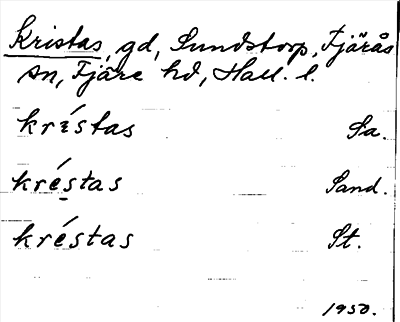 Kristas, gd, Sundstorp, Fjärås
sn, Fjäre hd, Hall. l.
krístas Sa.
kréstas Sand.
kréstas St.
1950.